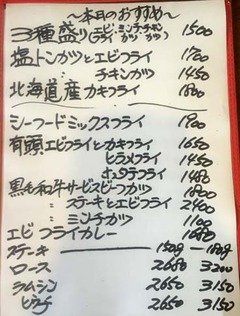 〜本日のおすすめ〜
3種盛り(エビ・ミンチ・チキン 1500
フライ カツ カツ)
塩トンカツとエビフライ 1700
〃 チキンカツ 1450
北海道産カキフライ 1800
シーフードミックスフライ 1900
有頭エビフライとカキフライ 1650
〃 ヒラメフライ 1450
〃 ホタテフライ 1480
黒毛和牛サービスビーフカツ 1800
〃 ステーキとエビフライ 2400
〃 ミンチカツ 1100
エビフライカレー 1680
ステーキ 150g 180g
ロース 2680 3200
ラムシン 2650 3150
ヒウチ 2650 3150